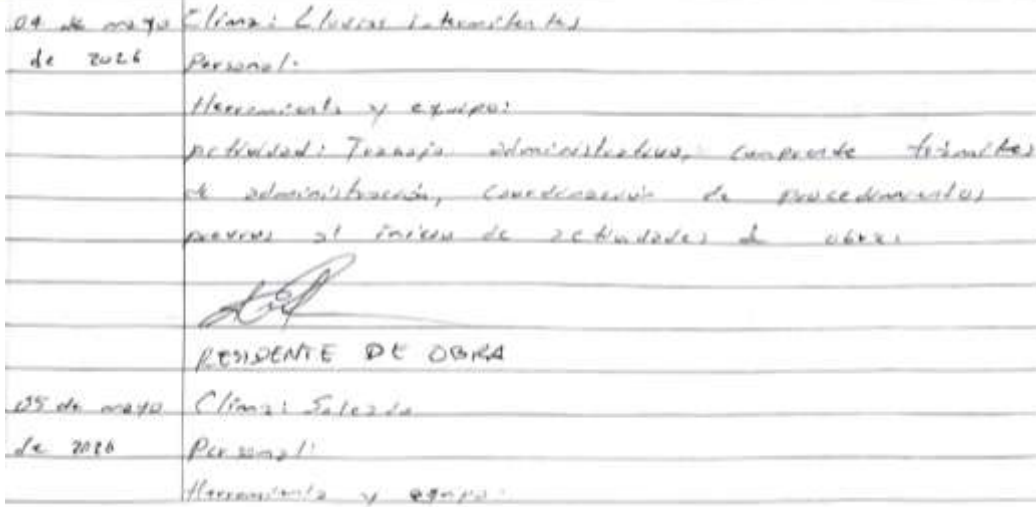 04 de mayo Clima: Lluvias intermitentes
de 2026 Personal:
Herramienta y equipo:
Actividad: Trabajo administrativo, comprende trámites
de administración, coordinación de procedimientos
previos al inicio de actividades de obra.
RESIDENTE DE OBRA
05 de mayo Clima: Soleado
de 2026 Personal:
Herramienta y equipo: